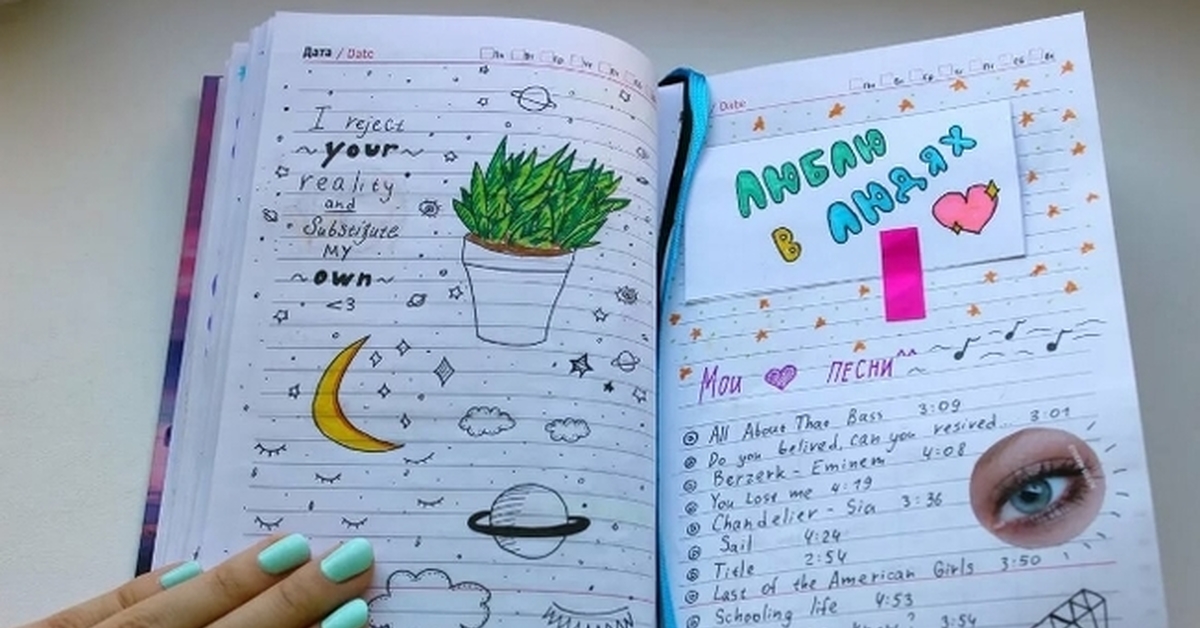 Дата / Date
I reject
~your~
reality
and
Substitute
MY
~own~
<3
/ Date
ЛЮБЛЮ
В ЛЮДЯХ
Мои ПЕСНИ^^
All About That Bass 3:09
Do you belived, can you resived... 3:01
Berzerk - Eminem 4:08
You Lose me 4:19
Chandelier - Sia 3:36
Sail 4:24
Title 2:54
Last of the American Girls 3:50
Schooling life 4:53
3:54